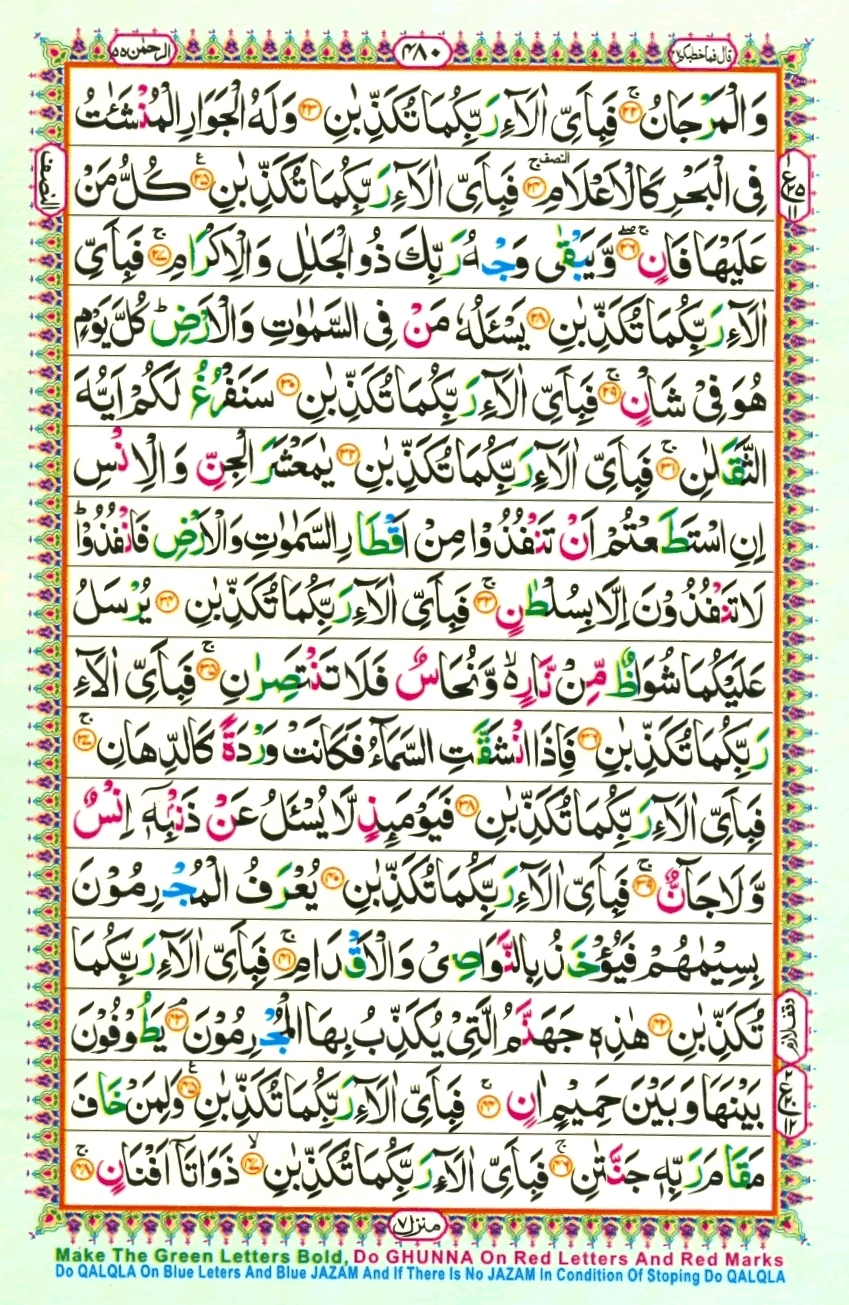 الرحمٰن ٥٥
٤٨٠
قال فما خطبكم ٢٧
وَالْمَرْجَانُ ۚ‏﴿۲۲﴾ فَبِاَىِّ اٰلَآءِ رَبِّكُمَا تُكَذِّبٰنِ ﴿۲۳﴾ وَلَهُ الْجَوَارِ الْمُنْشَئٰتُ
فِى الْبَحْرِ كَالْاَعْلَامِ ۚ‏﴿۲۴﴾ فَبِاَىِّ اٰلَآءِ رَبِّكُمَا تُكَذِّبٰنِ ﴿۲۵﴾ كُلُّ مَنْ
عَلَيْهَا فَانٍ ۚۖ‏﴿۲۶﴾ وَّيَبْقٰى وَجْهُ رَبِّكَ ذُو الْجَلٰلِ وَالْاِكْرَامِ ۚ‏﴿۲۷﴾ فَبِاَىِّ
اٰلَآءِ رَبِّكُمَا تُكَذِّبٰنِ ﴿۲۸﴾ يَسْئَلُهٗ مَنْ فِى السَّمٰوٰتِ وَالْاَرْضِ ؕ كُلَّ يَوْمٍ
هُوَ فِىْ شَاْنٍ ۚ‏﴿۲۹﴾ فَبِاَىِّ اٰلَآءِ رَبِّكُمَا تُكَذِّبٰنِ ﴿۳۰﴾ سَنَفْرُغُ لَكُمْ اَيُّهَ
الثَّقَلٰنِ ۚ‏﴿۳۱﴾ فَبِاَىِّ اٰلَآءِ رَبِّكُمَا تُكَذِّبٰنِ ﴿۳۲﴾ يٰمَعْشَرَ الْجِنِّ وَالْاِنْسِ
اِنِ اسْتَطَعْتُمْ اَنْ تَنْفُذُوْا مِنْ اَقْطَارِ السَّمٰوٰتِ وَالْاَرْضِ فَانْفُذُوْا ؕ
لَا تَنْفُذُوْنَ اِلَّا بِسُلْطٰنٍ ۚ‏﴿۳۳﴾ فَبِاَىِّ اٰلَآءِ رَبِّكُمَا تُكَذِّبٰنِ ﴿۳۴﴾ يُرْسَلُ
عَلَيْكُمَا شُوَاظٌ مِّنْ نَّارٍ ۙ وَّنُحَاسٌ فَلَا تَنْتَصِرٰنِ ۚ‏﴿۳۵﴾ فَبِاَىِّ اٰلَآءِ
رَبِّكُمَا تُكَذِّبٰنِ ﴿۳۶﴾ فَاِذَا انْشَقَّتِ السَّمَآءُ فَكَانَتْ وَرْدَةً كَالدِّهَانِ ۚ‏﴿۳۷﴾
فَبِاَىِّ اٰلَآءِ رَبِّكُمَا تُكَذِّبٰنِ ﴿۳۸﴾ فَيَوْمَئِذٍ لَّا يُسْئَلُ عَنْ ذَنْۢبِهٖۤ اِنْسٌ
وَّلَا جَآنٌّ ۚ‏﴿۳۹﴾ فَبِاَىِّ اٰلَآءِ رَبِّكُمَا تُكَذِّبٰنِ ﴿۴۰﴾ يُعْرَفُ الْمُجْرِمُوْنَ
بِسِيْمٰهُمْ فَيُؤْخَذُ بِالنَّوَاصِىْ وَالْاَقْدَامِ ۚ‏﴿۴۱﴾ فَبِاَىِّ اٰلَآءِ رَبِّكُمَا
تُكَذِّبٰنِ ﴿۴۲﴾ هٰذِهٖ جَهَنَّمُ الَّتِىْ يُكَذِّبُ بِهَا الْمُجْرِمُوْنَ ۘ‏﴿۴۳﴾ يَطُوْفُوْنَ
بَيْنَهَا وَبَيْنَ حَمِيْمٍ اٰنٍ ۚ‏﴿۴۴﴾ فَبِاَىِّ اٰلَآءِ رَبِّكُمَا تُكَذِّبٰنِ ﴿۴۵﴾ وَلِمَنْ خَافَ
مَقَامَ رَبِّهٖ جَنَّتٰنِ ۚ‏﴿۴۶﴾ فَبِاَىِّ اٰلَآءِ رَبِّكُمَا تُكَذِّبٰنِ ۙ‏﴿۴۷﴾ ذَوَاتَاۤ اَفْنَانٍ ۚ‏﴿۴۸﴾
النصف
وقف لازم
منزل ٧
Make The Green Letters Bold, Do GHUNNA On Red Letters And Red Marks
Do QALQLA On Blue Leters And Blue JAZAM And If There Is No JAZAM In Condition Of Stoping Do QALQLA